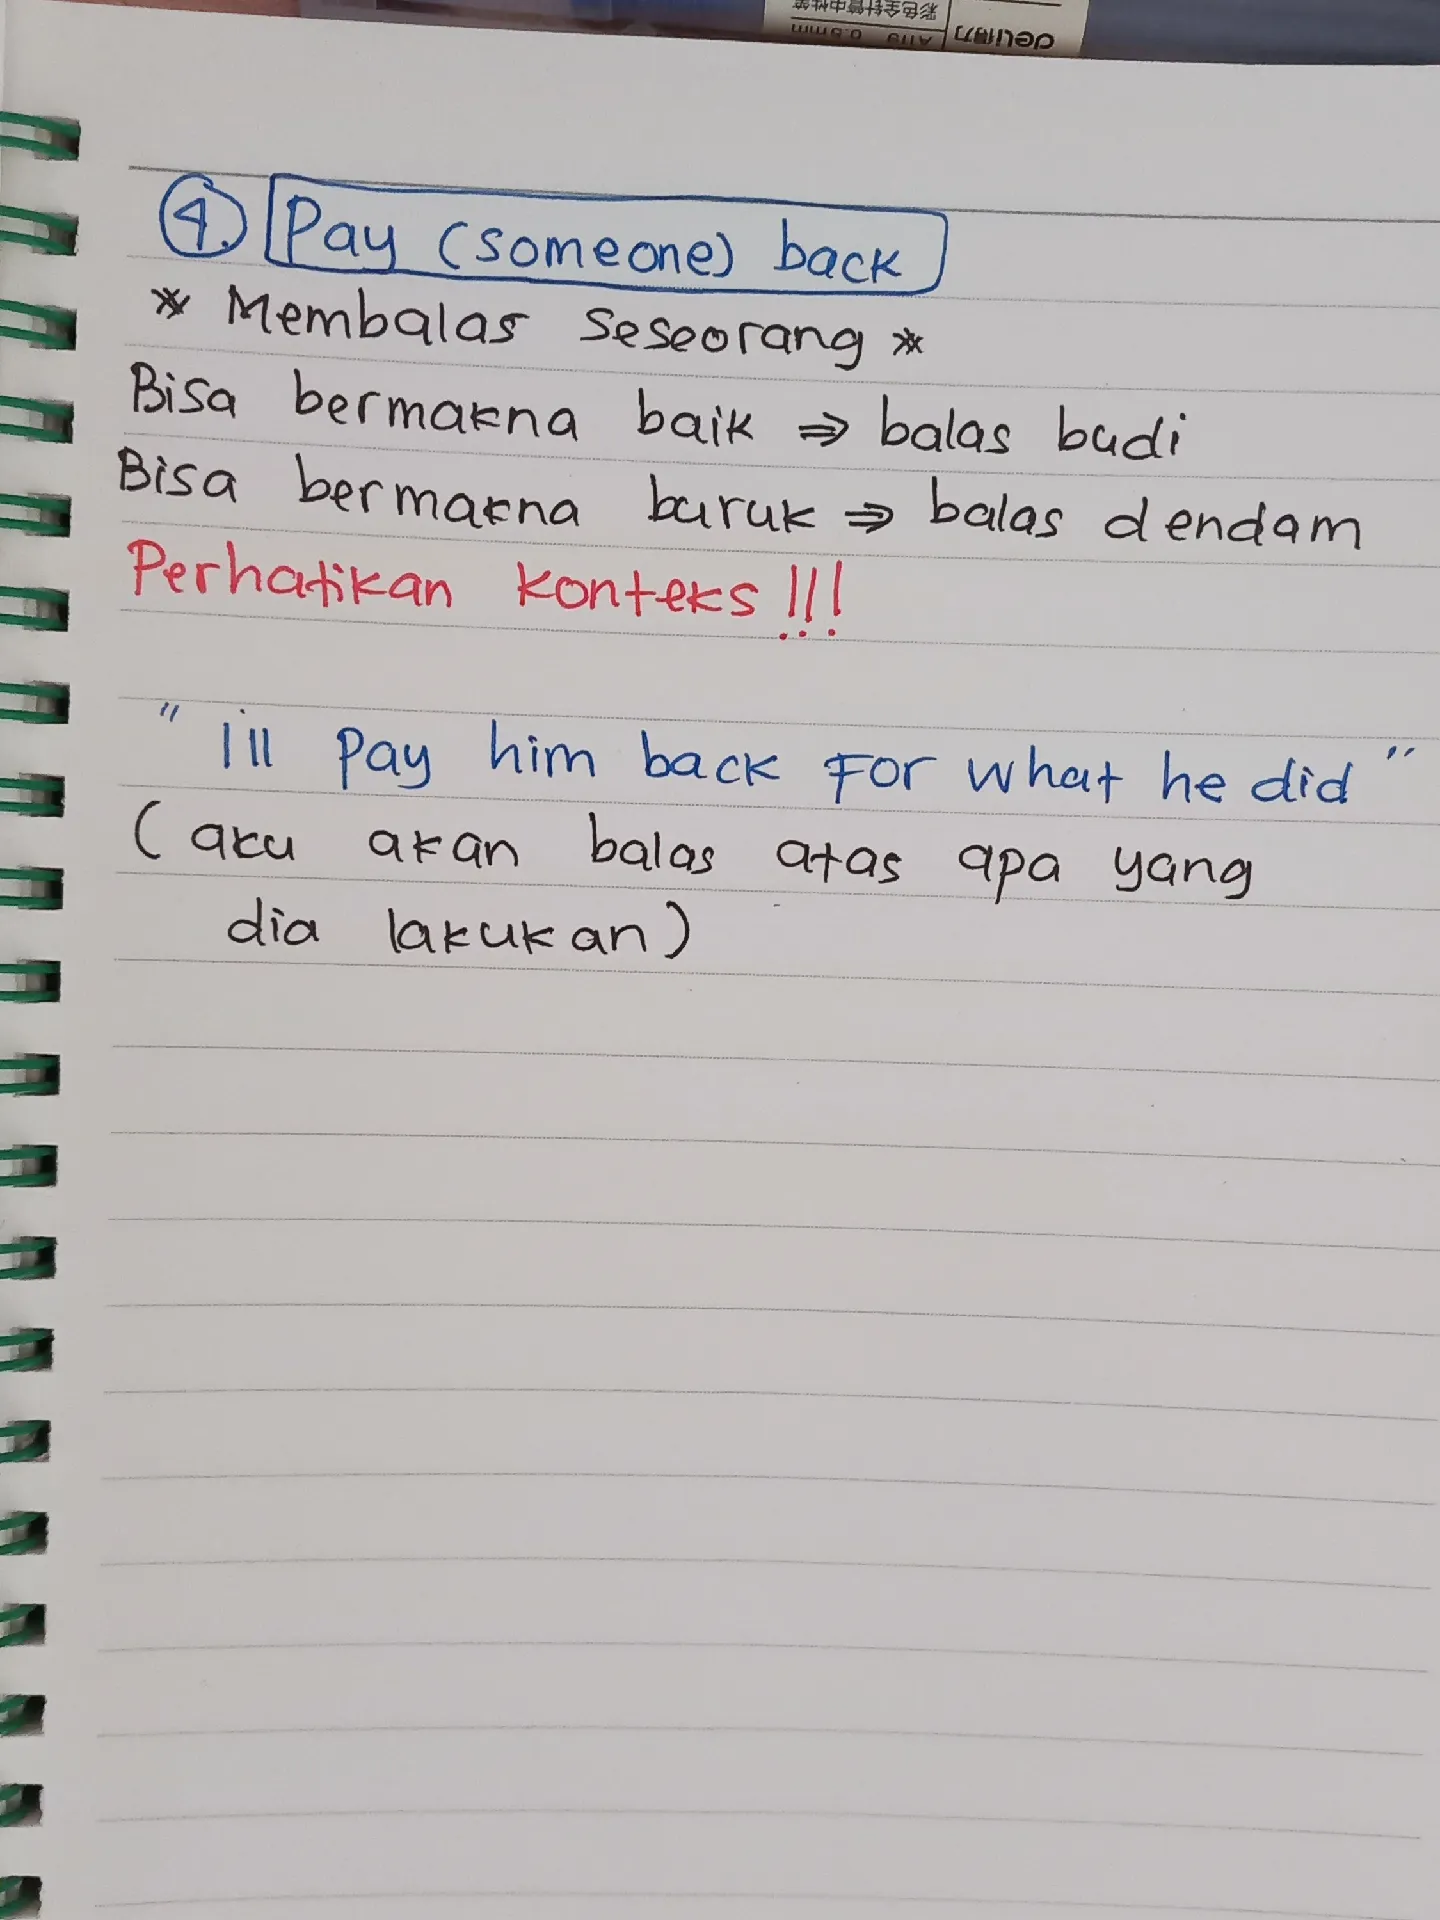 deli得力
A119 0.5mm
彩色全针管中性笔
4. Pay (someone) back
* Membalas seseorang *
Bisa bermakna baik ⇒ balas budi
Bisa bermakna buruk ⇒ balas dendam
Perhatikan konteks !!!
" i'll pay him back for what he did "
(aku akan balas atas apa yang
dia lakukan)